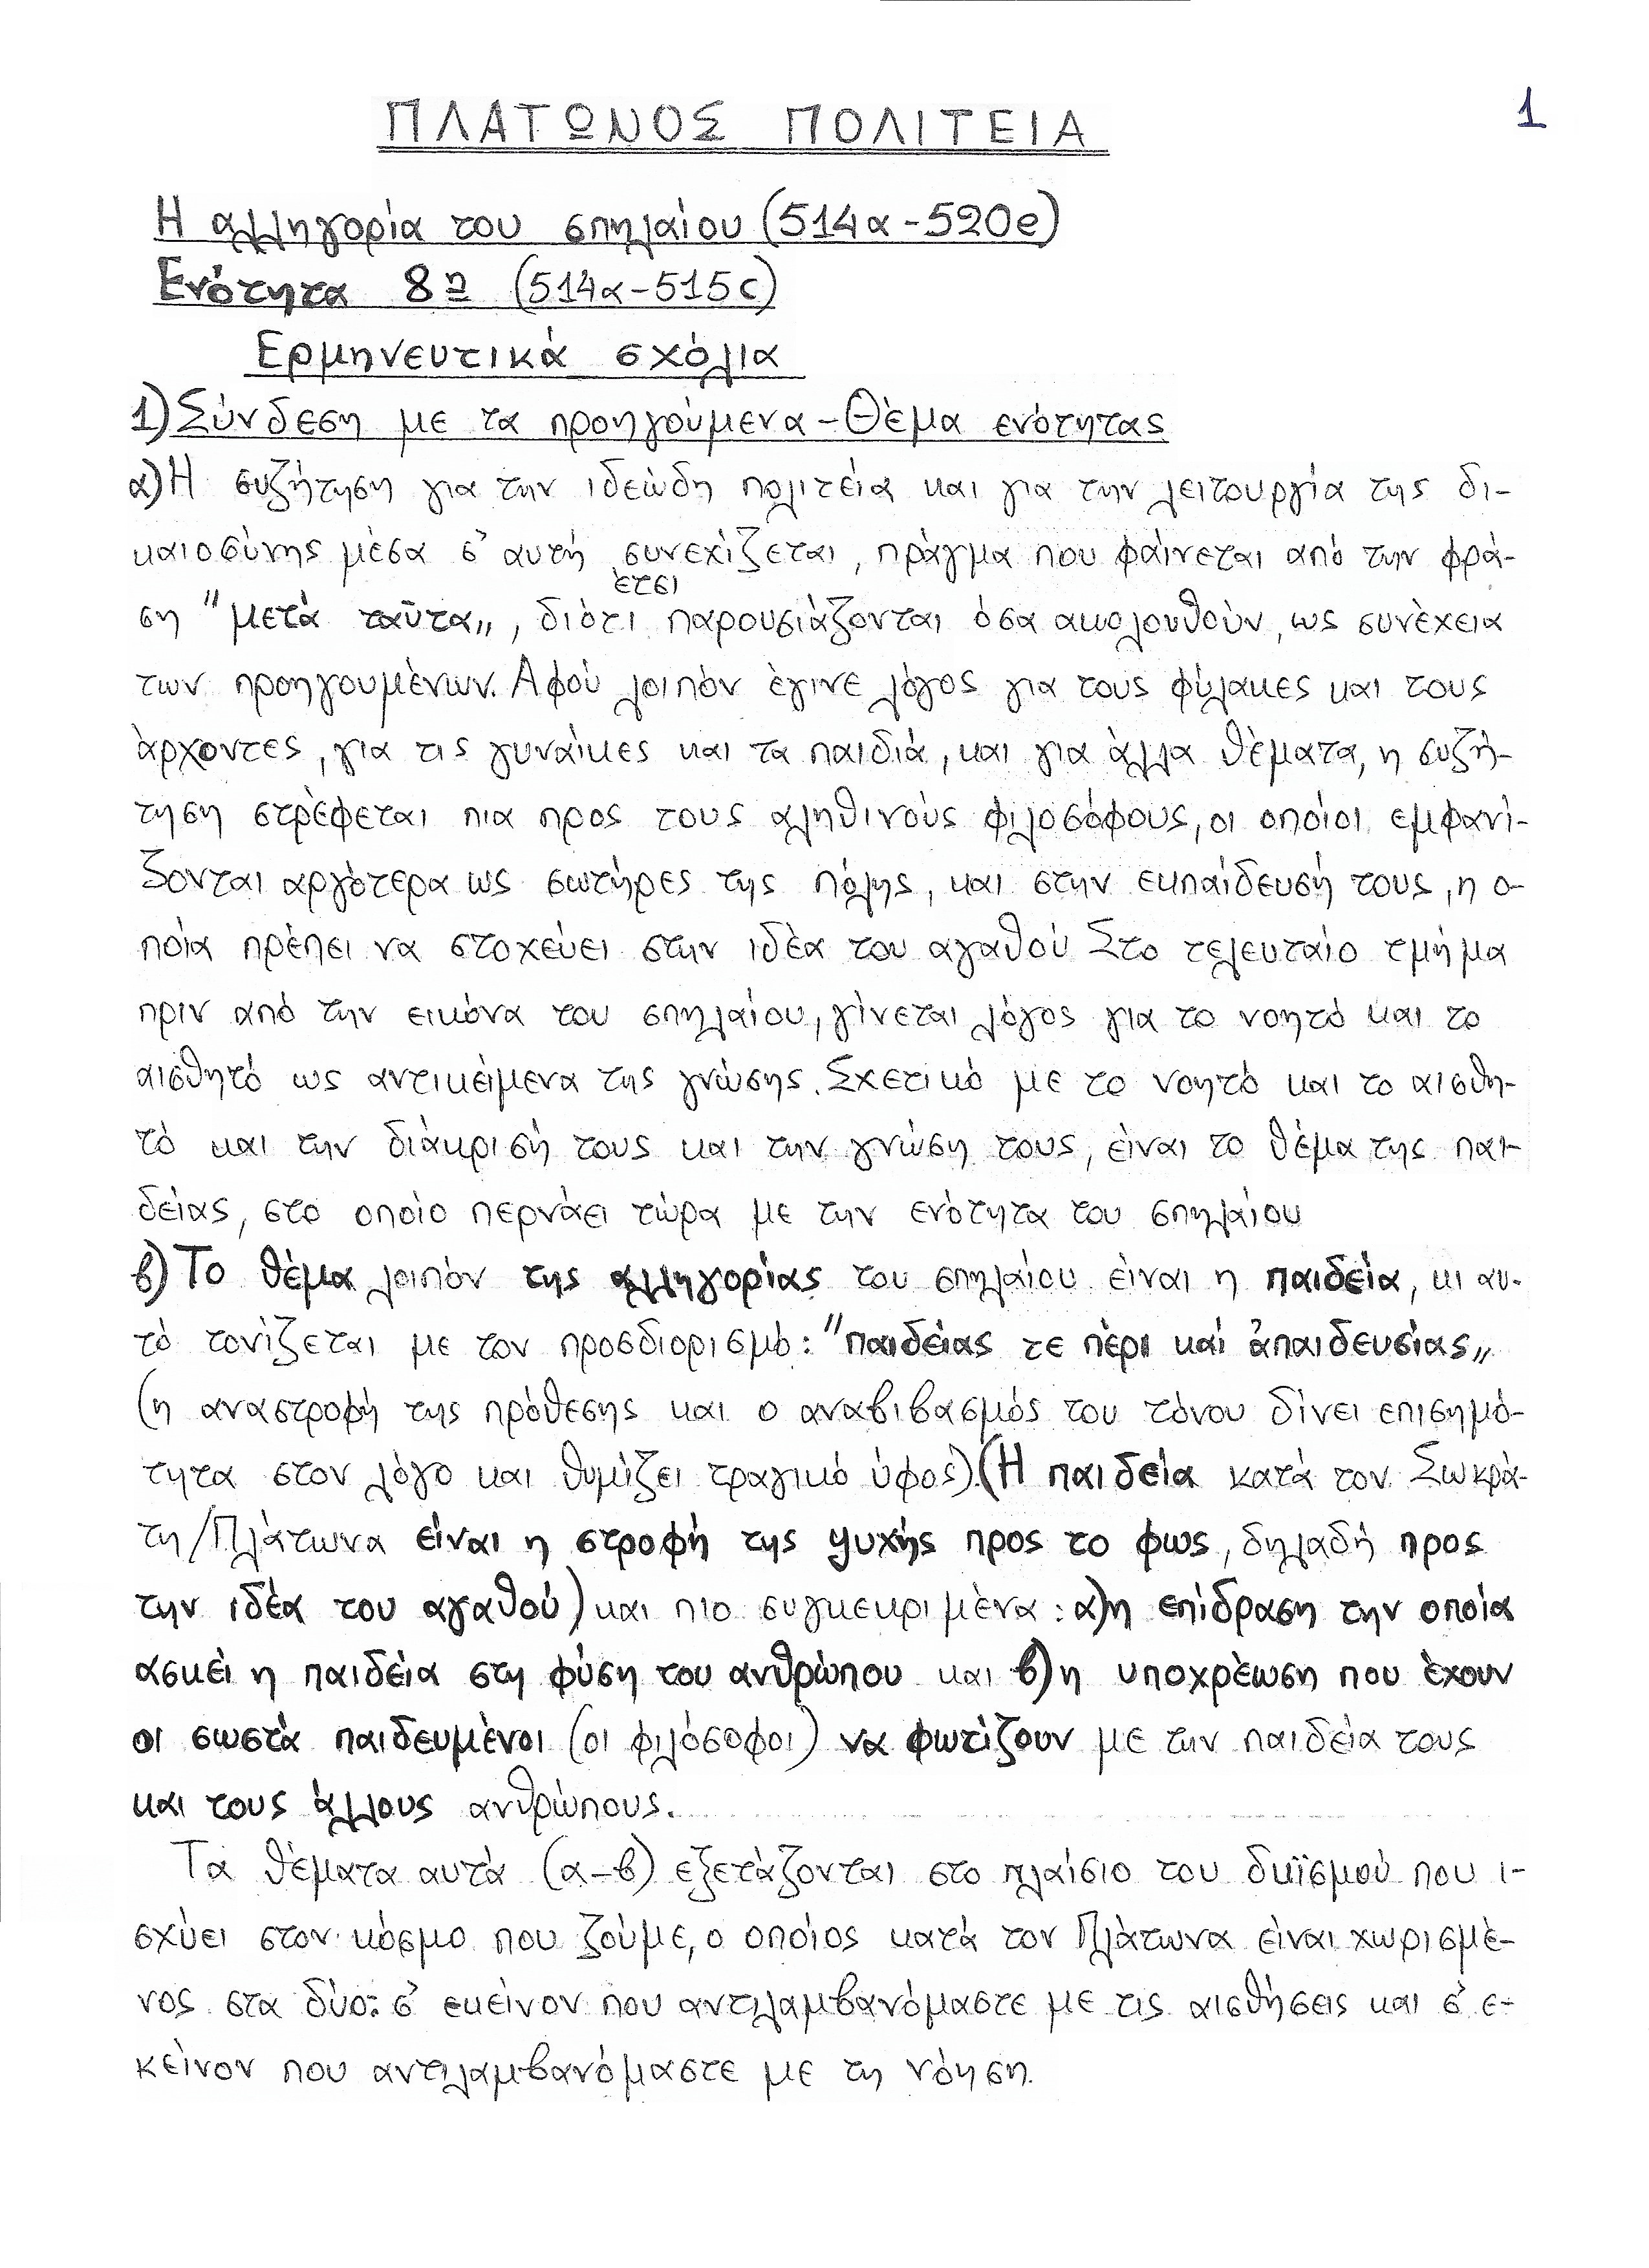 1
ΠΛΑΤΩΝΟΣ ΠΟΛΙΤΕΙΑ
Η αλληγορία του σπηλαίου (514α-520e)
Ενότητα 8η (514α-515c)
Ερμηνευτικά σχόλια
1) Σύνδεση με τα προηγούμενα - Θέμα ενότητας
α) Η συζήτηση για την ιδεώδη πολιτεία και για την λειτουργία της δι-
καιοσύνης μέσα σ' αυτή συνεχίζεται, πράγμα που φαίνεται από την φρά-
έτσι
ση "μετά ταῦτα,,, διότι παρουσιάζονται όσα ακολουθούν, ως συνέχεια
των προηγουμένων. Αφού λοιπόν έγινε λόγος για τους φύλακες και τους
άρχοντες, για τις γυναίκες και τα παιδιά, και για άλλα θέματα, η συζή-
τηση στρέφεται πια προς τους αληθινούς φιλοσόφους, οι οποίοι εμφανί-
ζονται αργότερα ως σωτήρες της πόλης, και στην εκπαίδευσή τους, η ο-
ποία πρέπει να στοχεύει στην ιδέα του αγαθού Στο τελευταίο τμήμα
πριν από την εικόνα του σπηλαίου, γίνεται λόγος για το νοητό και το
αισθητό ως αντικείμενα της γνώσης. Σχετικό με το νοητό και το αισθη-
τό και την διάκρισή τους και την γνώση τους, είναι το θέμα της παι-
δείας, στο οποίο περνάει τώρα με την ενότητα του σπηλαίου
β) Το θέμα λοιπόν της αλληγορίας του σπηλαίου είναι η παιδεία, κι αυ-
τό τονίζεται με τον προσδιορισμό: "παιδείας τε πέρι καί ἀπαιδευσίας,,
(η αναστροφή της πρόθεσης και ο αναβιβασμός του τόνου δίνει επισημό-
τητα στον λόγο και θυμίζει τραγικό ύφος). (Η παιδεία κατά τον Σωκρά-
τη/Πλάτωνα είναι η στροφή της ψυχής προς το φως, δηλαδή προς
την ιδέα του αγαθού) και πιο συγκεκριμένα: α) η επίδραση την οποία
ασκεί η παιδεία στη φύση του ανθρώπου και β) η υποχρέωση που έχουν
οι σωστά παιδευμένοι (οι φιλόσοφοι) να φωτίζουν με την παιδεία τους
και τους άλλους ανθρώπους.
Τα θέματα αυτά (α-β) εξετάζονται στο πλαίσιο του δυϊσμού που ι-
σχύει στον κόσμο που ζούμε, ο οποίος κατά τον Πλάτωνα είναι χωρισμέ-
νος στα δύο: σ' εκείνον που αντιλαμβανόμαστε με τις αισθήσεις και σ' ε-
κείνον που αντιλαμβανόμαστε με τη νόηση.